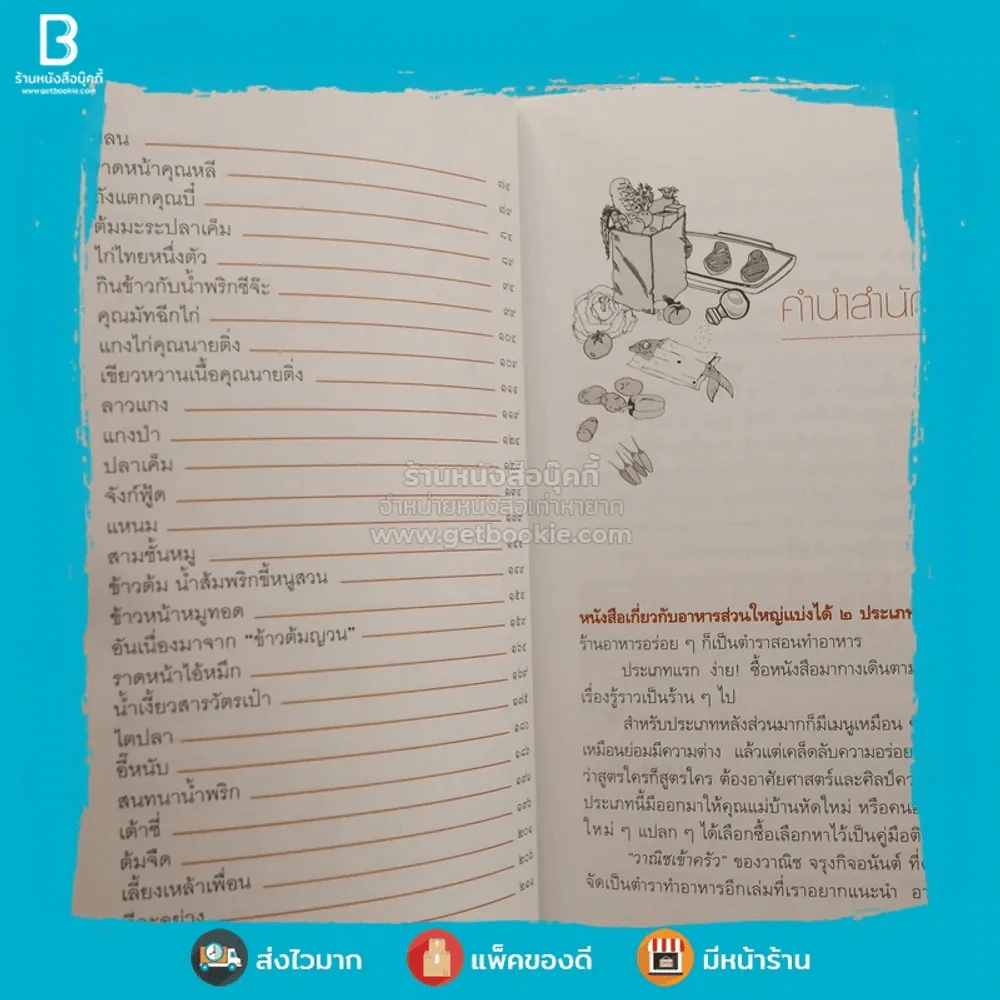 B
ร้านหนังสือบุ๊คกี้
www.getbookie.com
ลน
าดหน้าคุณหลี ๗๔
ถังแตกคุณบี๋ ๗๙
ต้มมะระปลาเค็ม ๘๔
ไก่ไทยหนึ่งตัว ๘๙
กินข้าวกับน้ำพริกซีจ๊ะ ๙๔
คุณมัทฉีกไก่ ๙๙
แกงไก่คุณนายติ่ง ๑๐๔
เขียวหวานเนื้อคุณนายติ่ง ๑๐๙
ลาวแกง ๑๑๔
แกงป่า ๑๑๙
ปลาเค็ม ๑๒๔
จังก์ฟู้ด
แหนม
สามชั้นหมู
ข้าวต้ม น้ำส้มพริกขี้หนูสวน ๑๔๙
ข้าวหน้าหมูทอด ๑๕๔
อันเนื่องมาจาก “ข้าวต้มญวน” ๑๕๙
ราดหน้าไอ้หมึก ๑๖๔
น้ำเงี้ยวสารวัตรเป๋า ๑๖๙
ไตปลา ๑๗๕
อี๊หนับ ๑๘๐
สนทนาน้ำพริก ๑๘๖
เต้าซี่ ๑๙๑
ต้มจืด ๑๙๖
เลี้ยงเหล้าเพื่อน ๒๐๑
๒๐๖
๒๑๑
คำนำสำนั
หนังสือเกี่ยวกับอาหารส่วนใหญ่แบ่งได้ ๒ ประเภ
ร้านอาหารอร่อย ๆ ก็เป็นตำราสอนทำอาหาร
ประเภทแรก ง่าย! ซื้อหนังสือมากางเดินตาม
เรื่องรู้ราวเป็นร้าน ๆ ไป
สำหรับประเภทหลังส่วนมากก็มีเมนูเหมือน
เหมือนย่อมมีความต่าง แล้วแต่เคล็ดลับความอร่อย
ว่าสูตรใครก็สูตรใคร ต้องอาศัยศาสตร์และศิลป์คว
ประเภทนี้มีออกมาให้คุณแม่บ้านหัดใหม่ หรือคน
ใหม่ ๆ แปลก ๆ ได้เลือกซื้อเลือกหาไว้เป็นคู่มือติ
“วาณิชเข้าครัว” ของวาณิช จรุงกิจอนันต์ ที่
จัดเป็นตำราทำอาหารอีกเล่มที่เราอยากแนะนำ อ
ร้านหนังสือบุ๊คกี้
จำหน่ายหนังสือเก่าหายาก
www.getbookie.com
ส่งไวมาก
แพ็คของดี
มีหน้าร้าน